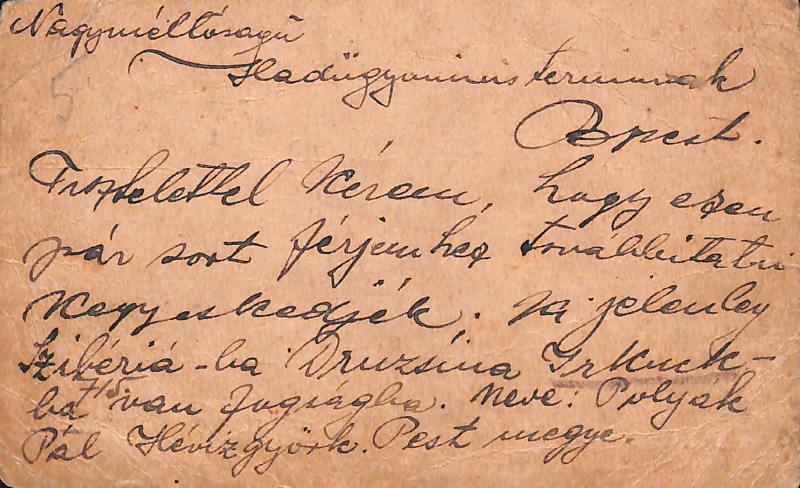 Nagyméltóságú
Hadügyminiszteriumnak
Bpest.
Tisztelettel kérem, hogy ezen
pár sort férjemhez továbbitatni
kegyeskedjék, ki jelenleg
Szibériá-ba Druzsina Irkuck-
ba 7/5 van fogságba. Neve: Polyák
Pál Hévizgyörk. Pest megye.